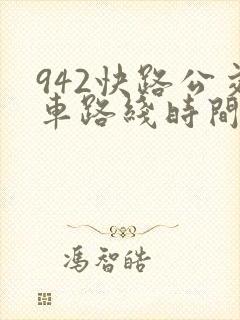 942快路公交
車路綫時間
馮智皓